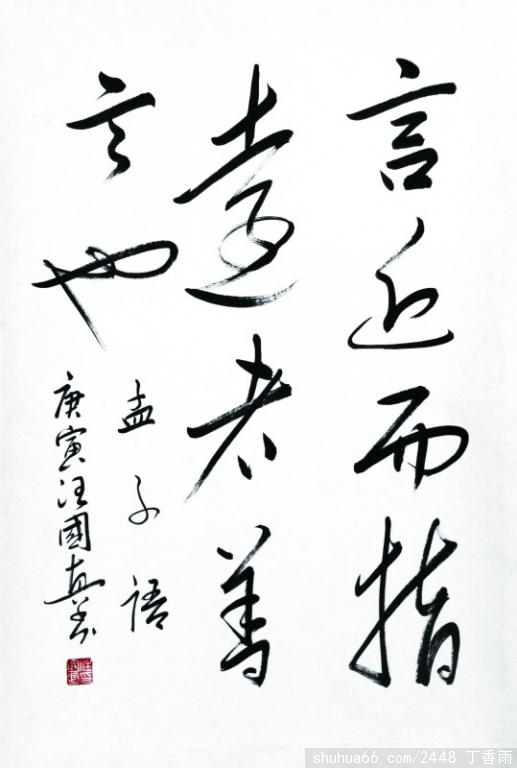 言近而指
遠者善
言也
孟子語
庚寅汪國真書
shuhua66.com/2448 丁香雨